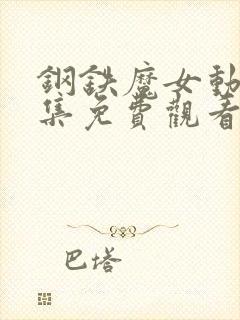 鋼鉄魔女動
集免費觀看
巴塔